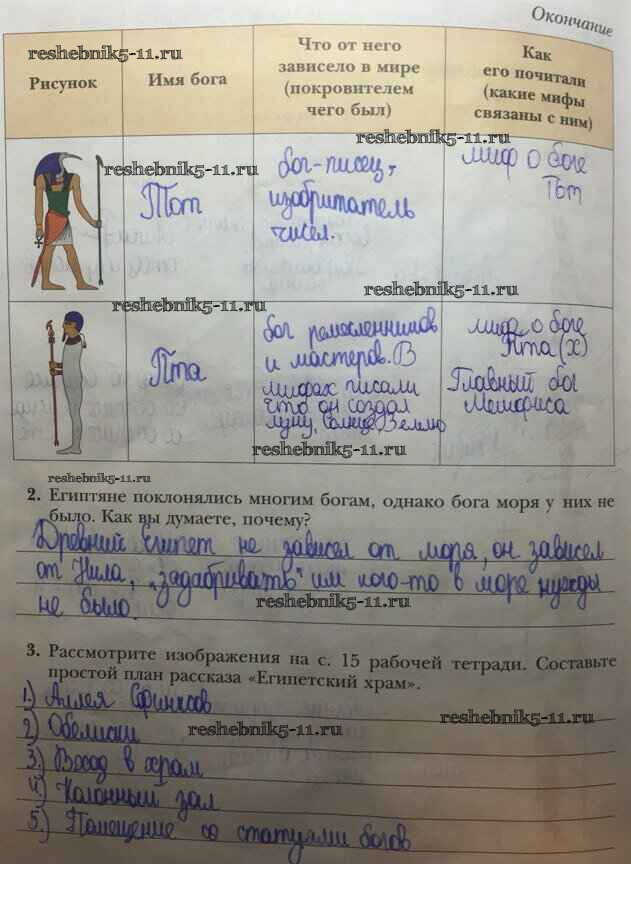 Окончание
reshebnik5-11.ru
Рисунок
Имя бога
Что от него
зависело в мире
(покровителем
чего был)
Как
его почитали
(какие мифы
связаны с ним)
reshebnik5-11.ru
reshebnik5-11.ru
Тот
бог-писец,
изобритатель
чисел.
миф о боге
Тот
reshebnik5-11.ru
reshebnik5-11.ru
Пта
бог ремесленников
и мастеров. В
мифах писали
что он создал
луну, Солнце, Землю
миф о боге
Пта (х)
Главный бог
Мемфиса
reshebnik5-11.ru
reshebnik5-11.ru
2. Египтяне поклонялись многим богам, однако бога моря у них не
было. Как вы думаете, почему?
Древний Египет не зависел от моря, он зависел
от Нила, „задабривать" им кого-то в море нужды
не было.
reshebnik5-11.ru
3. Рассмотрите изображения на с. 15 рабочей тетради. Составьте
простой план рассказа «Египетский храм».
1.) Аллея Сфинксов
2) Обелиски
reshebnik5-11.ru
reshebnik5-11.ru
3.) Вход в храм
4.) Колонный зал
5.) Помещение со статуями богов